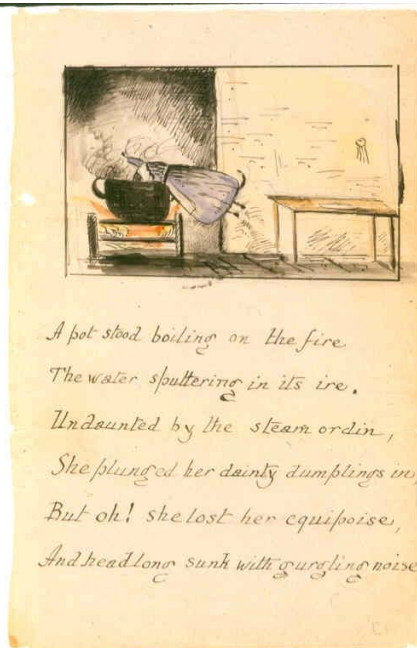 A pot stood boiling on the fire
The water sputtering in its ire.
Undaunted by the steam or din,
She plunged her dainty dumplings in,
But oh! she lost her equipoise,
And headlong sunk with gurgling noise